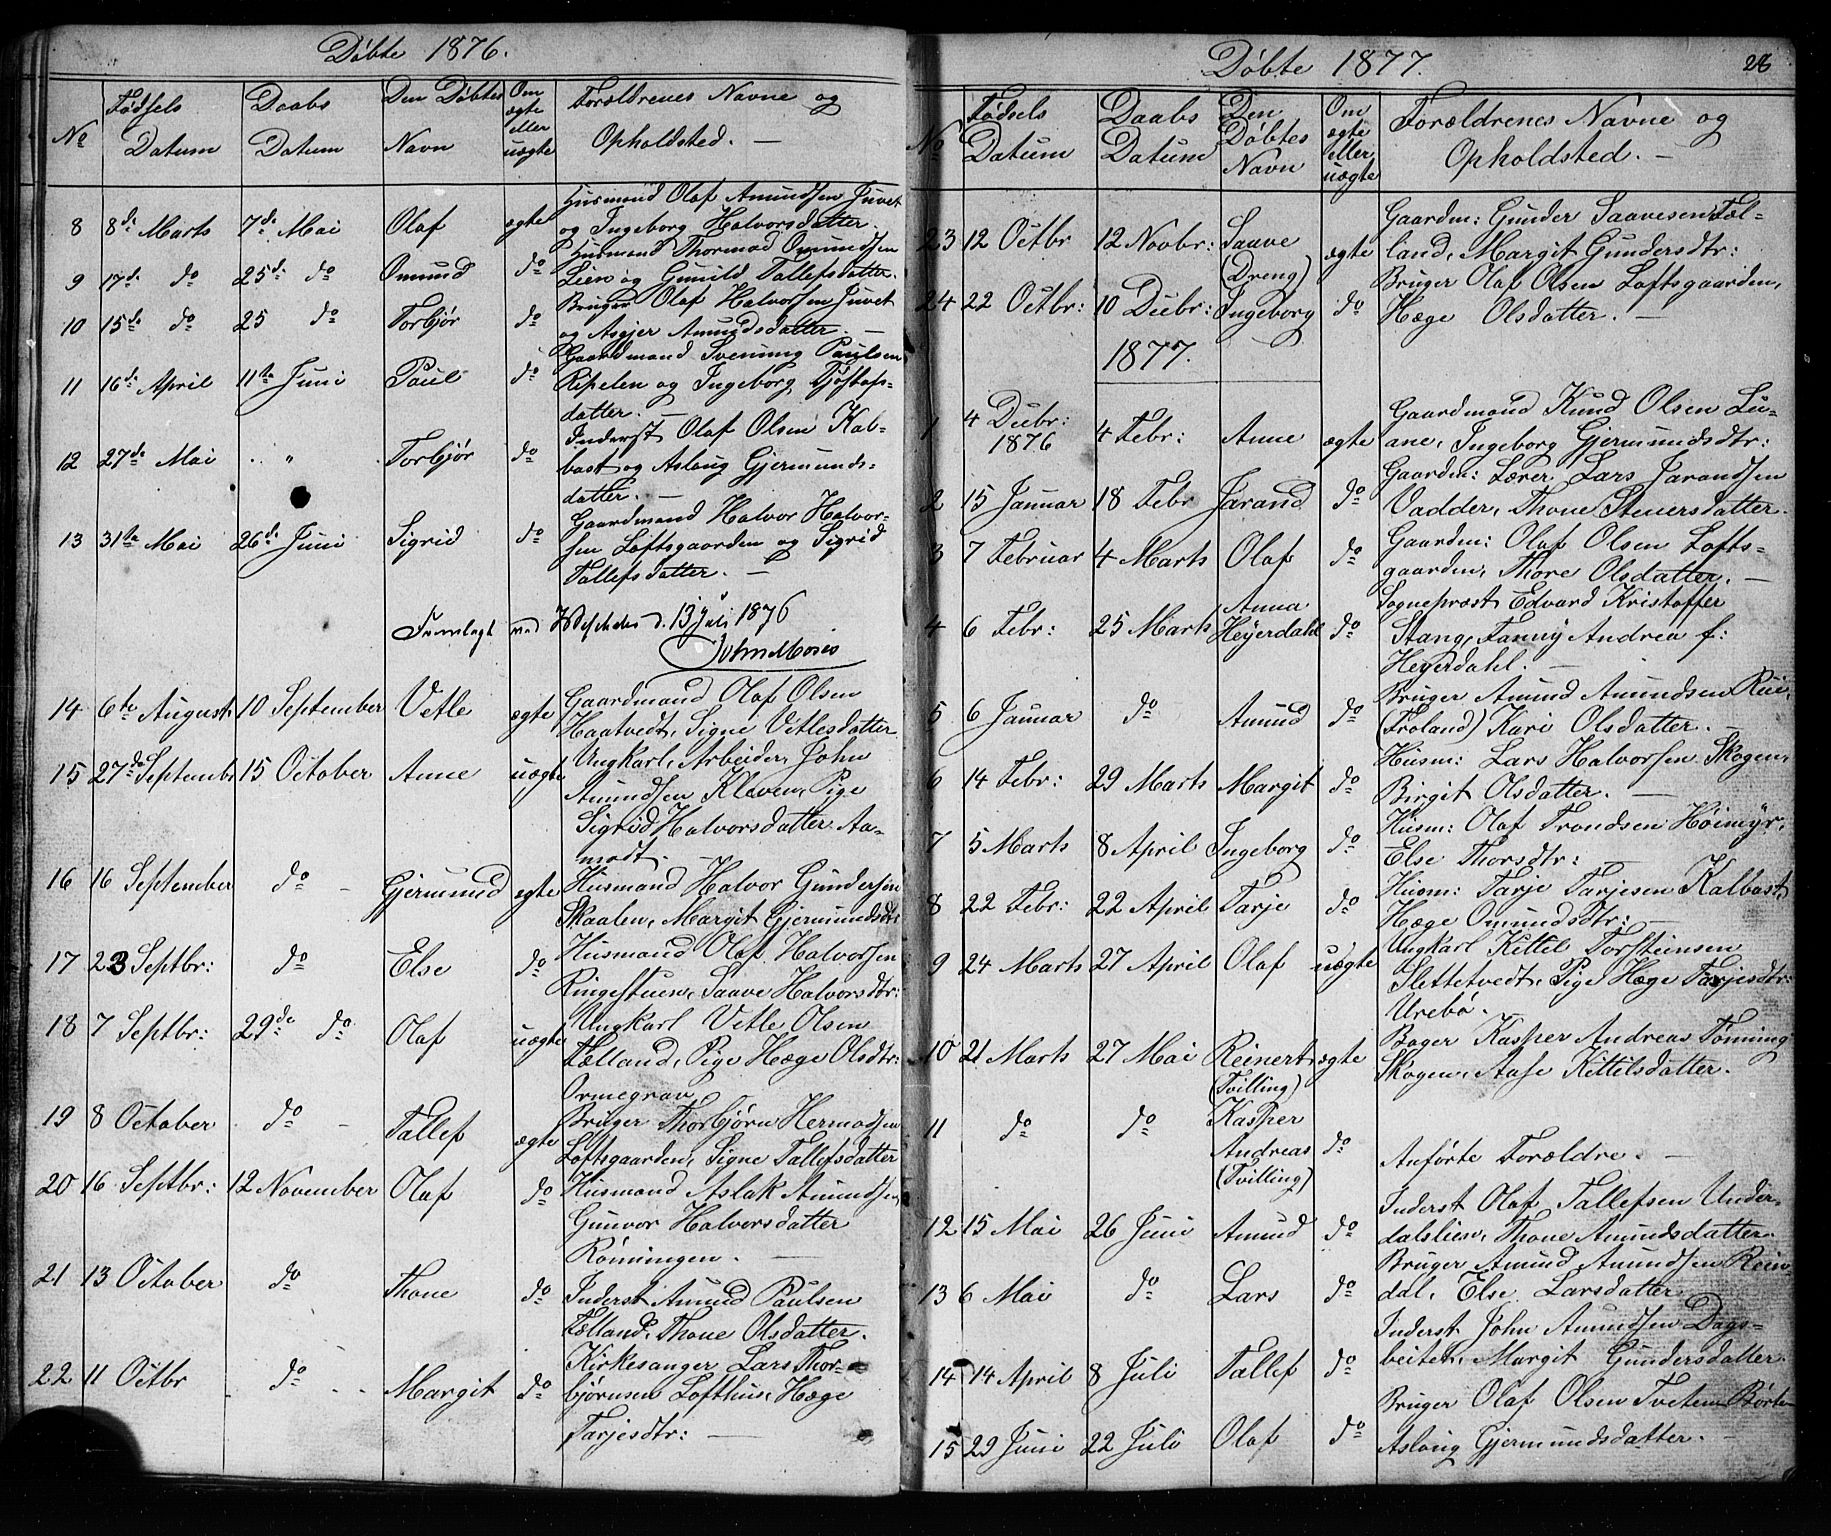 Døbte 1876.
No
Fødsels Datum
Daabs Datum
Den Døbtes Navn
Om ægte eller uægte
Forældrenes Navne og
Opholdsted. —
8 8de Marts 7de Mai Olaf ægte Husmand Olaf Amundsen Juvet
og Ingeborg Halvorsdatter.
9 17de do 25de do Omund do Husmand Thormod Omundsen
Lien og Gunild Tallefsdatter.
10 15de do 25 do Torbjør do Bruger Olaf Halvorsen Juvet
og Asgjer Amundsdatter. —
11 16de April 11te Juni Paul do Gaardmand Svenung Paulsen
Ripelen og Ingeborg Tjøstofs-
datter. —
12 27de Mai " Torbjør do Inderst Olaf Olsen Kal-
bast og Aslaug Gjermunds-
datter. —
13 31te Mai 26de Juni Sigrid do Gaardmand Halvor Halvor-
sen Loftsgaarden og Sigrid
Tallefsdatter. —
Fremlagt ved Visitats d. 13 Juli 1876
John Moses
14 6te August 10 September Vetle ægte Gaardmand Olaf Olsen
Haatvedt, Signe Vetlesdatter
15 27de Septembr 15 October Anne uægte Ungkarl, Arbeider John
Amundsen Kleven, Pige
Sigrid Halvorsdatter Aa-
modt.
16 16 September do Gjermund ægte Husmand Halvor Gundersen
Skaalen, Margit Gjermundsdtr:
17 23 Septbr: do Else do Husmand Olaf Halvorsen
Ringestuen, Saave Halvorsdtr:
18 7 Septbr: 29de do Olaf uægte Ungkarl Vetle Olsen
Fælland, Pige Hæge Olsdtr:
Ormegrav
19 8 October do Tallef ægte Bruger Thorbjørn Hermodsen
Loftsgaarden, Signe Tallefsdatter
20 16 Septbr: 12 November Olaf do Husmand Aslak Amundsen,
Gunvor Halvorsdatter
Rønningen. —
21 13 October do Thone do Inderst Amund Paulsen
Fælland, Thone Olsdatter.
22 11 Octbr do Margit do Kirkesanger Lars Thor-
bjørnsen Lofthus, Hæge
Tarjesdtr: —
Døbte 1877.
28
No
Fødsels Datum
Daabs Datum
Den Døbtes Navn
Om ægte eller uægte
Forældrenes Navne og
Opholdsted. —
23 12 Octbr 12 Novbr: Saave (Dreng) ægte Gaardm: Gunder Saavesen Fæl-
land, Margit Gundersdtr:
24 22 Octbr: 10 Decbr: Ingeborg do Bruger Olaf Olsen Loftsgaarden,
Hæge Olsdatter. —
1877.
1 4 Decbr: 1876 4 Febr: Anne ægte Gaardmand Knud Olsen Lu-
ane, Ingeborg Gjermundsdtr:
2 15 Januar 18 Febr Jarand do Gaardm: Lærer Lars Jarandsen
Vadder, Thone Stenersdatter.
3 7 Februar 4 Marts Olaf do Gaardm: Olaf Olsen Lofts-
gaarden, Thore Olsdatter. —
4 6 Febr: 25 Marts Anna Heyerdahl do Sognepræst Edvard Kristoffer
Stang, Fanny Andrea f:
Heyerdahl. —
5 6 Januar do Amund do Bruger Amund Amundsen Rui,
(Froland) Kari Olsdatter. —
6 14 Febr: 29 Marts Margit do Husm: Lars Halvorsen Skogen,
Birgit Olsdatter. —
7 5 Marts 8 April Ingeborg do Husm: Olaf Trondsen Høimyr,
Else Thorsdtr: —
8 22 Febr: 22 April Tarje do Husm: Tarje Tarjesen Kalbast,
Hæge Omundsdtr: —
9 24 Marts 27 April Olaf uægte Ungkarl Kittel Torsteinsen
Slettetvedt, Pige Hæge Tarjesdtr:
Urebø.
10 21 Marts 27 Mai Reinert (Tvilling) ægte Bager Kasper Andreas Tønning
Skogen, Aase Kittelsdatter.
11 do do Kasper Andreas (Tvilling) do Anførte Forældre. —
12 15 Mai 26 Juni Amund do Inderst Olaf Tallefsen Under-
dalslien, Thone Amundsdatter
13 6 Mai do Lars do Bruger Amund Amundsen Rein-
dal, Else Larsdatter
14 14 April 8 Juli Tallef do Inderst John Amundsen Dags-
beiten, Margit Gundersdatter.
15 29 Juni 22 Juli Olaf do Bruger Olaf Olsen Tveten Børte
Aslaug Gjermundsdatter. —